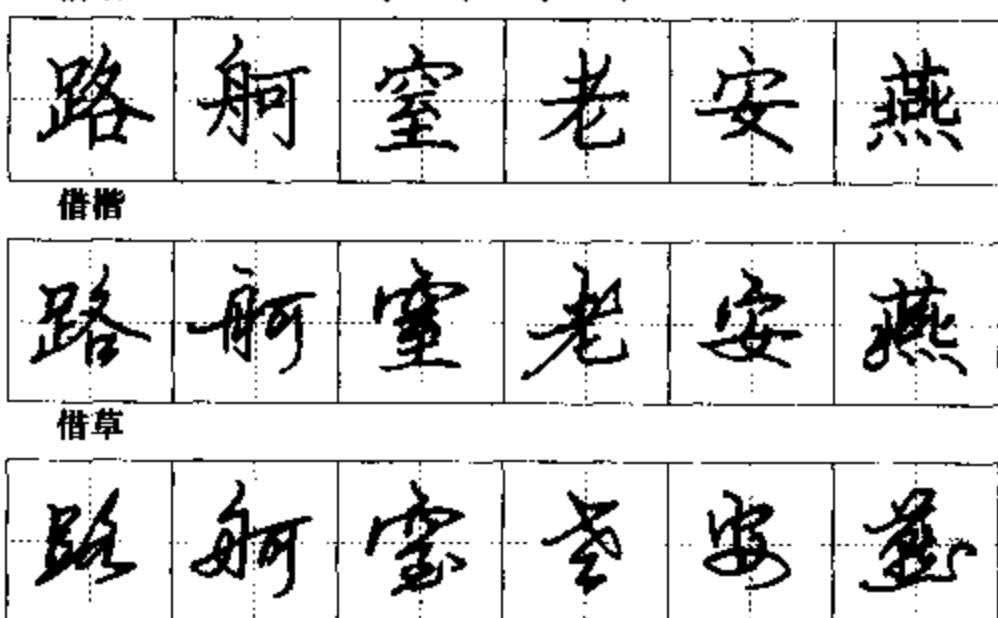 路舸窒老安燕
借楷
路舸窒老安燕
借草
路舸窒老安燕